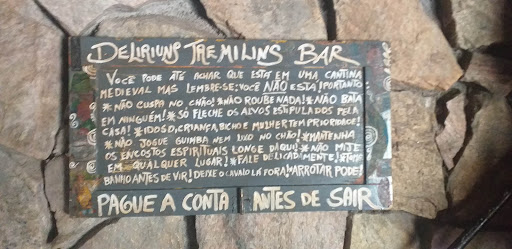 DELIRIUNS TREMILINS BAR
VOCÊ PODE ATÉ ACHAR QUE ESTÁ EM UMA CANTINA
MEDIEVAL MAS LEMBRE-SE: VOCÊ NÃO ESTÁ! PORTANTO
*NÃO CUSPA NO CHÃO! *NÃO ROUBE NADA! *NÃO BATA
EM NINGUÉM! * SÓ FLECHE OS ALVOS ESTIPULADOS PELA
CASA! *IDOSO, CRIANÇA, BICHO E MULHER TEM PRIORIDADE!
*NÃO JOGUE GUIMBA NEM LIXO NO CHÃO! *MANTENHA
OS ENCOSTOS ESPIRITUAIS LONGE DAQUI! *NÃO MIJE
EM QUALQUER LUGAR! *FALE DELICADAMENTE!
BANHO ANTES DE VIR! DEIXE O CAVALO LÁ FORA! *ARROTAR PODE!
PAGUE A CONTA ANTES DE SAIR